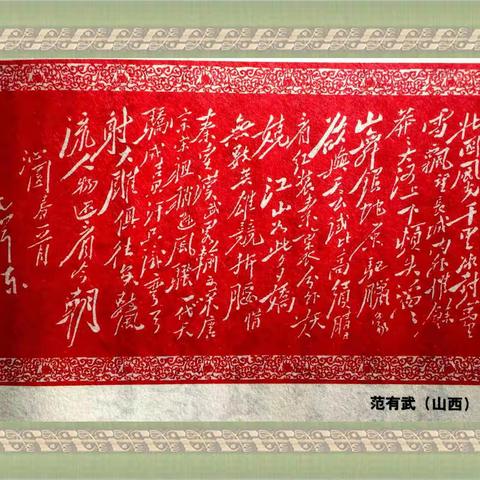 北国风光千里冰封万里
雪飘望长城内外惟餘
莽莽大河上下顿失滔滔
山舞银蛇原驰臘象
欲与天公试比高须晴
看红装素裹分外妖
娆 江山如此多娇
无数英雄競折腰惜
秦皇漢武略输文采唐
宗宋祖稍逊风骚一代天
骄成吉思汗只识弯弓
射大雕俱往矣数
流人物还看今朝
沁园春雪
毛泽东
范有武（山西）